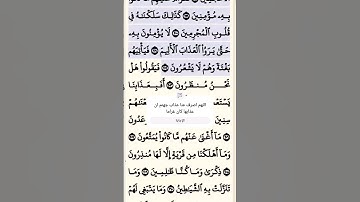 بِهِۦ مُؤْمِنِينَ ۝ كَذَٰلِكَ سَلَكْنَٰهُ فِى
قُلُوبِ ٱلْمُجْرِمِينَ ۝ لَا يُؤْمِنُونَ بِهِۦ
حَتَّىٰ يَرَوُا۟ ٱلْعَذَابَ ٱلْأَلِيمَ ۝ فَيَأْتِيَهُم
بَغْتَةً وَهُمْ لَا يَشْعُرُونَ ۝ فَيَقُولُوا۟ هَلْ
نَحْنُ مُنظَرُونَ ۝ أَفَبِعَذَابِنَا
اللهم اصرف عنا عذاب جهنم ان
عذابها كان غراما
مَآ أَغْنَىٰ عَنْهُم مَّا كَانُوا۟ يُمَتَّعُونَ ۝
وَمَآ أَهْلَكْنَا مِن قَرْيَةٍ إِلَّا لَهَا مُنذِرُونَ
۝ ذِكْرَىٰ وَمَا كُنَّا ظَٰلِمِينَ ۝ وَمَا
تَنَزَّلَتْ بِهِ ٱلشَّيَٰطِينُ ۝ وَمَا يَنۢبَغِى لَهُمْ